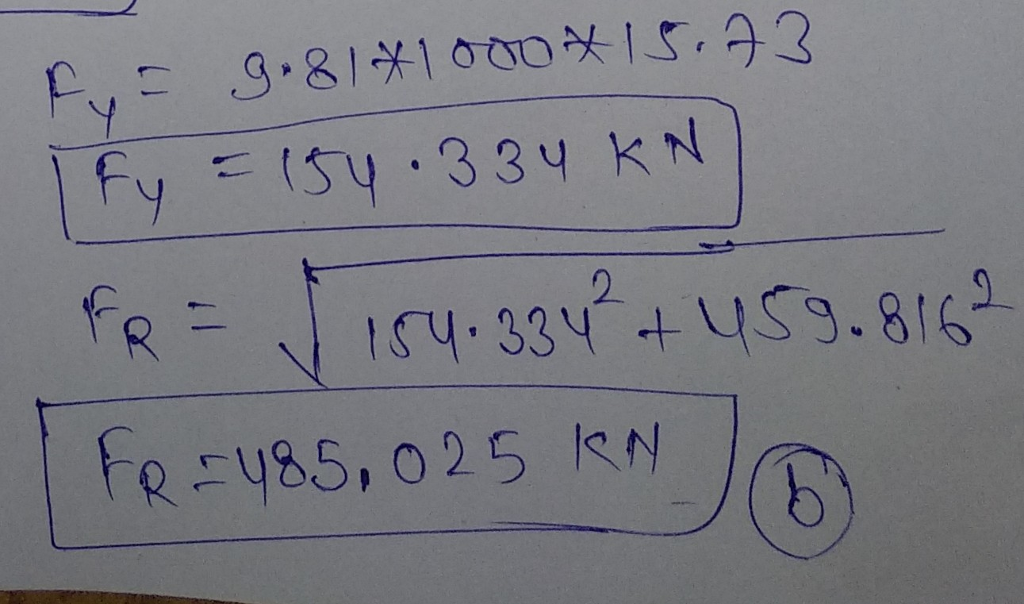 Fy = 9.81*1000*15.73
Fy = 154.334 KN
FR = √154.334² + 459.816²
FR = 485.025 KN
b